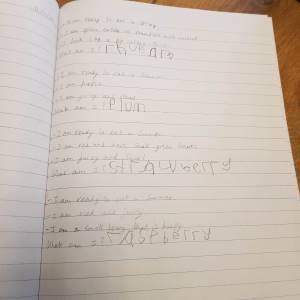 - I am ready to eat in Spring
- I am green outside
- I look like
What am I? rhubarb
- I am ready to eat in Summer
- I am purple
- I am juicy and
What am I? plum
- I am ready to eat in Summer
- I am red and have small green leaves
- I am juicy and sweet
What am I? strawberry
- I am ready to eat in Summer
- I am red and juicy
- I am a small berry that is
What am I? raspberry